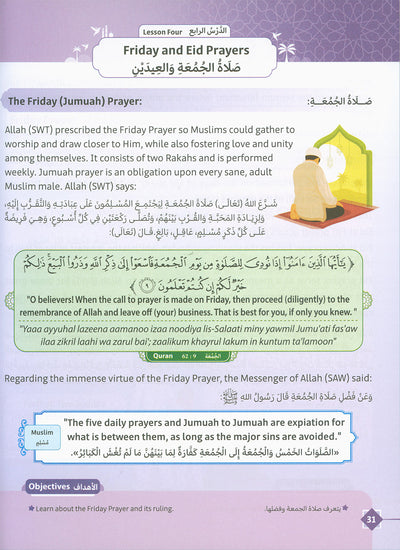 Lesson Four الدَّرْسُ الرَّابِع
Friday and Eid Prayers
صَلَاةُ الجُمُعَةِ وَالعِيدَيْنِ
The Friday (Jumuah) Prayer:
صَلَاةُ الجُمُعَةِ:
Allah (SWT) prescribed the Friday Prayer so Muslims could gather to
worship and draw closer to Him, while also fostering love and unity
among themselves. It consists of two Rakahs and is performed
weekly. Jumuah prayer is an obligation upon every sane, adult
Muslim male. Allah (SWT) says:
شَرَعَ اللهُ (تَعَالَى) صَلَاةَ الجُمُعَةِ لِيَجْتَمِعَ المُسْلِمُونَ عَلَى عِبَادَتِهِ وَالتَّقَرُّبِ إِلَيْهِ،
وَلِزِيَادَةِ المَحَبَّةِ وَالقُرْبِ بَيْنَهُمْ، وَتُصَلَّى رَكْعَتَيْنِ فِي كُلِّ أُسْبُوعٍ، وَهِيَ فَرِيضَةٌ
عَلَى كُلِّ ذَكَرٍ مُسْلِمٍ، عَاقِلٍ، بَالِغٍ. قَالَ (تَعَالَى):
﴿ يَٰٓأَيُّهَا ٱلَّذِينَ ءَامَنُوٓا۟ إِذَا نُودِىَ لِلصَّلَوٰةِ مِن يَوْمِ ٱلْجُمُعَةِ فَٱسْعَوْا۟ إِلَىٰ ذِكْرِ ٱللَّهِ وَذَرُوا۟ ٱلْبَيْعَ ۚ ذَٰلِكُمْ
خَيْرٌ لَّكُمْ إِن كُنتُمْ تَعْلَمُونَ ٩ ﴾
"O believers! When the call to prayer is made on Friday, then proceed (diligently) to the
remembrance of Allah and leave off (your) business. That is best for you, if only you knew. "
"Yaaa ayyuhal lazeena aamanoo izaa noodiya lis-Salaati miny yawmil Jumu'ati fas'aw
ilaa zikril laahi wa zarul bai'; zaalikum khayrul lakum in kuntum ta'lamoon"
Quran 62 : 9 الجُمُعَة
Regarding the immense virtue of the Friday Prayer, the Messenger of Allah (SAW) said:
وَعَنْ فَضْلِ صَلَاةِ الجُمُعَةِ قَالَ رَسُولُ اللهِ ﷺ:
Muslim
مُسْلِم
"The five daily prayers and Jumuah to Jumuah are expiation for
what is between them, as long as the major sins are avoided."
«الصَّلَوَاتُ الخَمْسُ وَالجُمُعَةُ إِلَى الجُمُعَةِ كَفَّارَةٌ لِمَا بَيْنَهُنَّ مَا لَمْ تُغْشَ الْكَبَائِرُ».
Objectives الأهداف
Learn about the Friday Prayer and its ruling.
يتعرف صلاة الجمعة وفضلها.
31